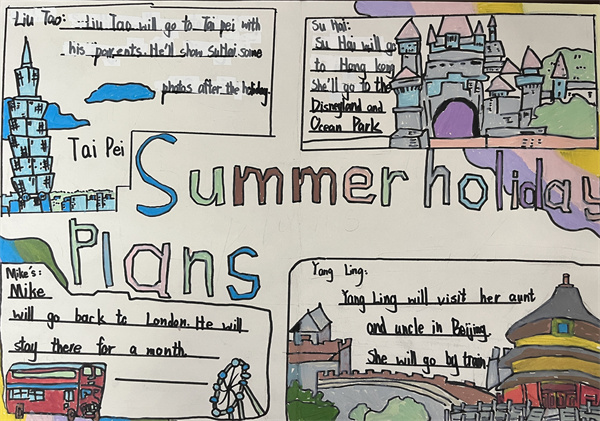 Liu Tao: Liu Tao will go to Tai pei with
his parents. He'll show Su Hai some
photos after the holiday.
Tai Pei
Su Hai:
Su Hai will go
to Hong kong
She'll go to the
Disneyland and
Ocean Park
Summer holiday
Plans
Mike's:
Mike
will go back to London. He will
stay there for a month.
Yang Ling:
Yang Ling will visit her aunt
and uncle in Beijing.
She will go by train.